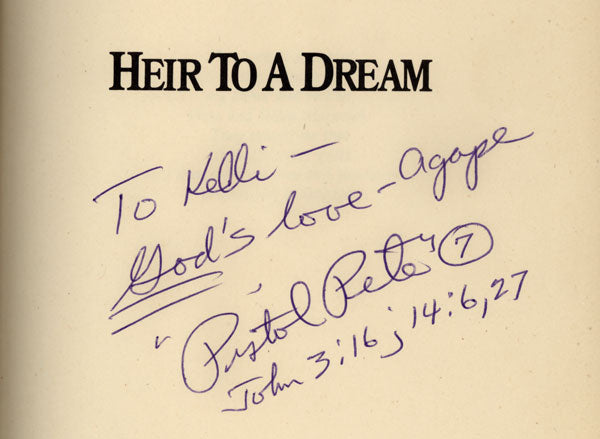 HEIR TO A DREAM
To Kelli —
God's love - agape
"Pistol Pete" 7
John 3:16; 14:6,27